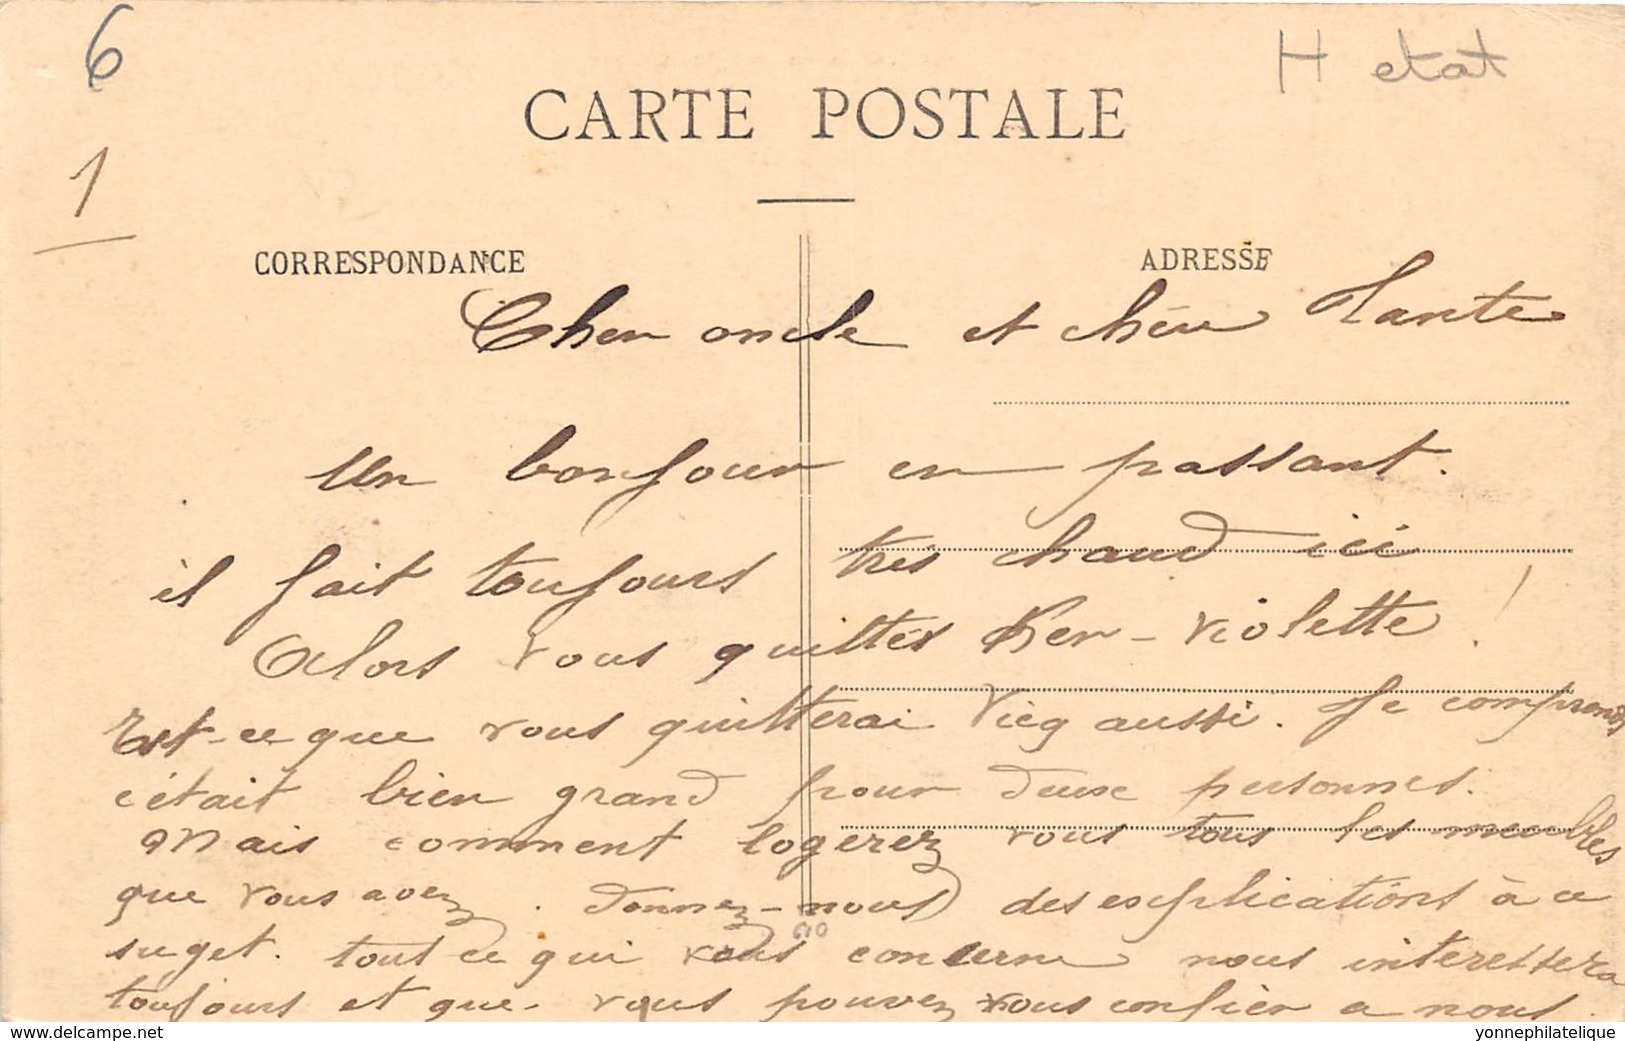 6
H etat
CARTE POSTALE
1
CORRESPONDANCE
ADRESSE
Cher oncle et chère Tante
Un bonjour en passant.
il fait toujours très chaud ici
Alors vous quittés Ker-Violette !
Est-ce que vous quitterai Vieg aussi. Je comprends
c'était bien grand pour deux personnes.
Mais comment logerez vous tous les meubles
que vous avez. Donnez-nous des explications à ce
suget. tout ce qui vous concerne nous interessera
toujours et que vous pouvez vous confier a nous.
www.delcampe.net
yonnephilatelique